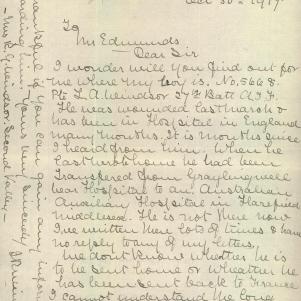 Oct 30th 1917
To
Mr Edmunds
Dear Sir
I wonder will you find out for
me where my boy is. No. 5668.
Pte L. A. Windsor Batt A.I.F.
He was wounded last march &
has been in Hospital in England
many months. It is months since
I heard from him. When he
last wrote home he had been
transfered from Graylingwell
war Hospital to an Australian
Hospital in Harefield
Middlesex. He is not there now
I've written there lots of times & have
no reply to any of my letters,
we dont know wheather he is
to be sent home or wheather he
has been sent back to France
I cannot understand the long
thankful if you can gain any
Yours very sincerely
Mrs R. G. Windsor, Second Valley